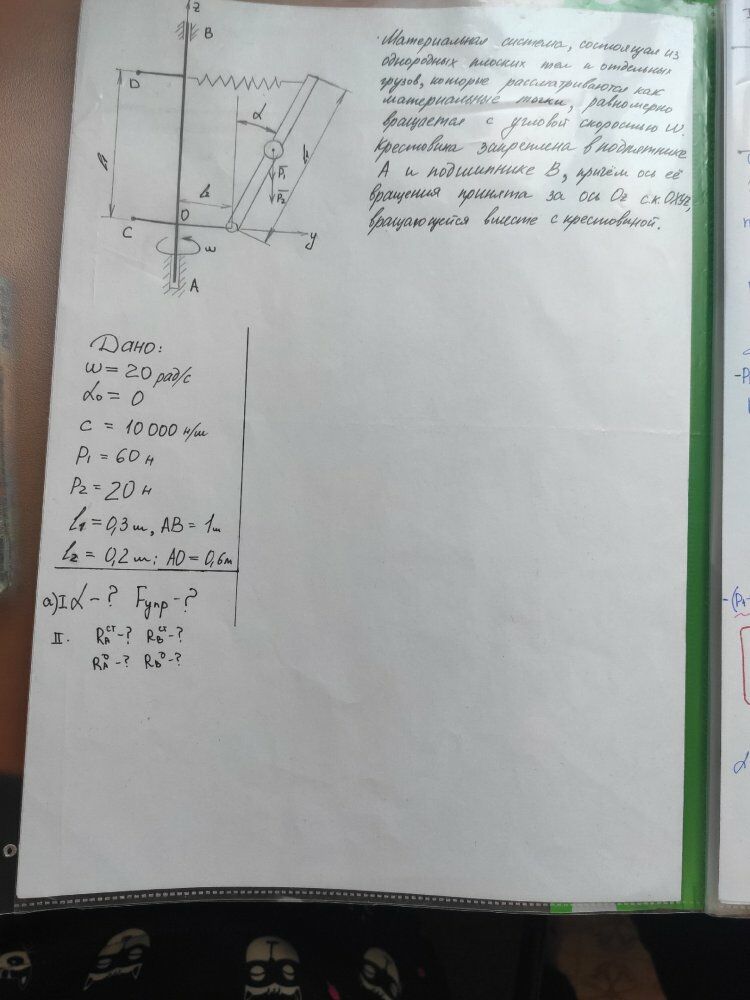 z
B
D
α
l₁
P̄₁
P̄₂
l₂
O
C
y
ω
A
Материальная система, состоящая из
однородных плоских тел и отдельных
грузов, которые рассматриваются как
материальные точки, равномерно
вращается с угловой скоростью ω.
Крестовина закреплена в подпятнике
A и подшипнике B, причём ось её
вращения принята за ось Oz с.к. Oxyz,
вращающейся вместе с крестовиной.
Дано:
ω = 20 рад/с
α₀ = 0
c = 10 000 н/м
P₁ = 60 н
P₂ = 20 н
l₁ = 0,3 м, AB = 1м
l₂ = 0,2 м; AO = 0,6м
a) I α - ? Fупр - ?
II. R_A^ст - ? R_B^ст - ?
R_A^D - ? R_B^D - ?